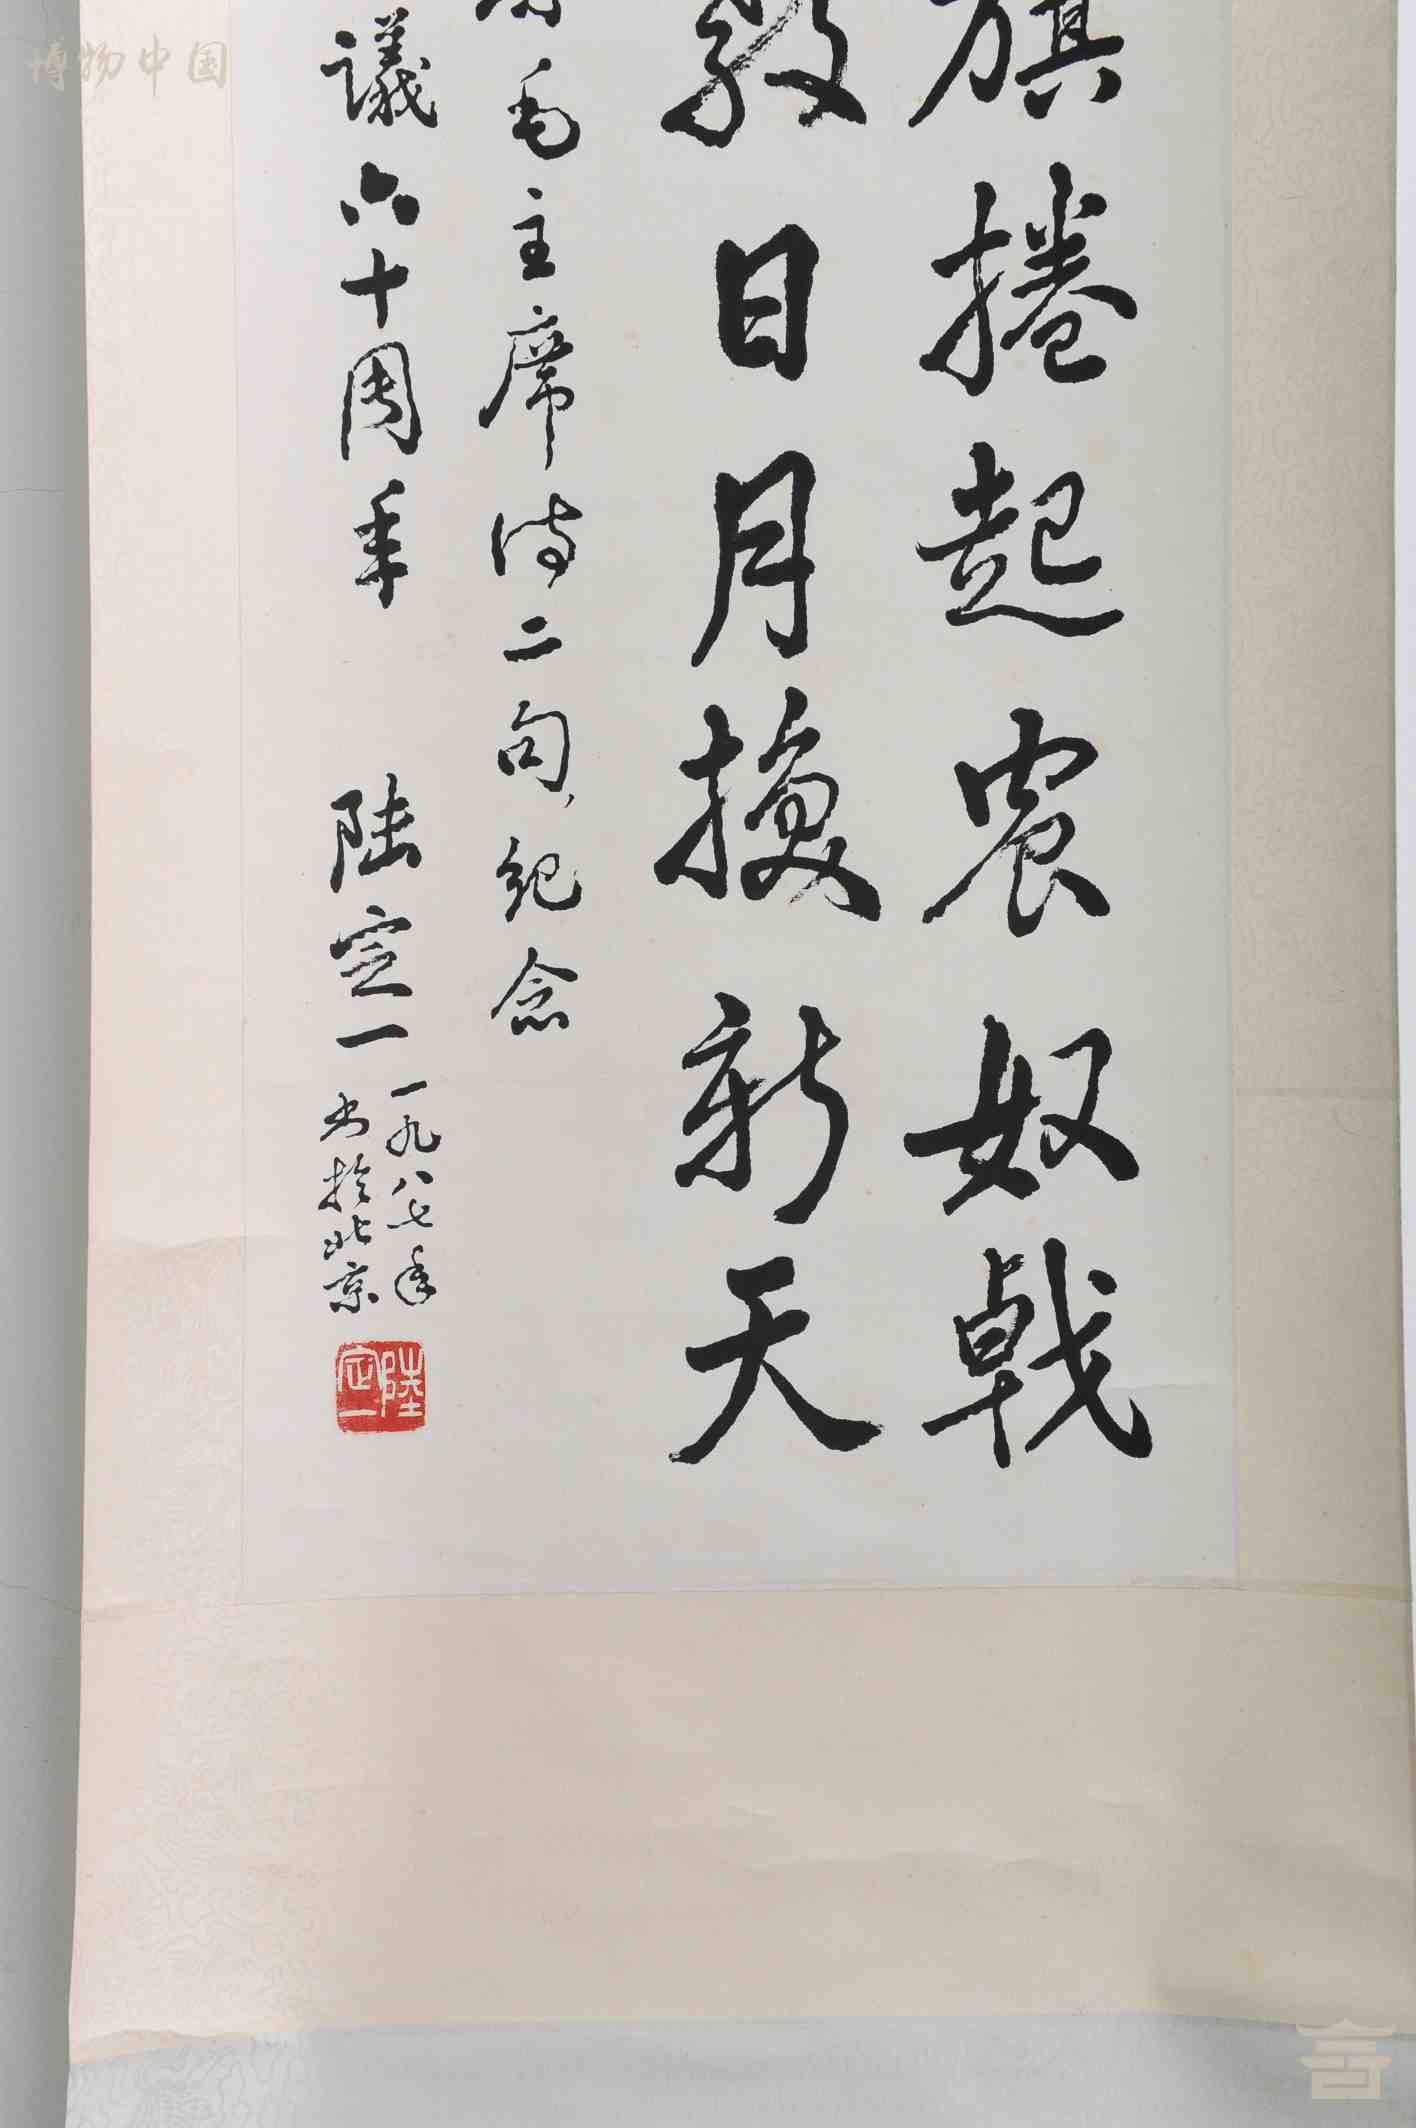 旗捲起农奴戟
教日月换新天
毛主席诗二句，纪念
议六十周年 陆定一
一九八七年
书於北京
陸定一
博物中国